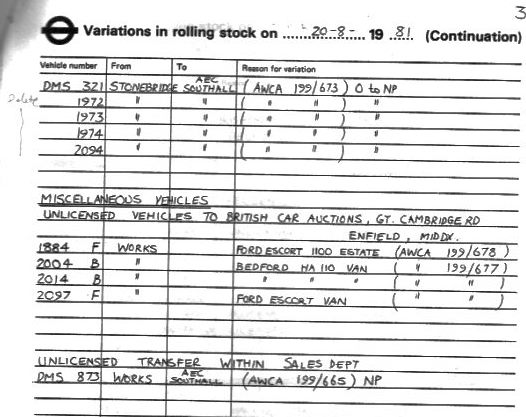 3
Variations in rolling stock on 20-8- 19 81 (Continuation)
Vehicle number From To Reason for variation
DMS 321 STONEBRIDGE AEC SOUTHALL (AWCA 199/673) O to NP
Delete
1972 " " ( " " ) "
1973 " " ( " " ) "
1974 " " ( " " ) "
2094 " " ( " " ) "
MISCELLANEOUS VEHICLES
UNLICENSED VEHICLES TO BRITISH CAR AUCTIONS, GT. CAMBRIDGE RD
ENFIELD, MIDDX.
1884 F WORKS FORD ESCORT 1100 ESTATE (AWCA 199/678)
2004 B " BEDFORD HA 110 VAN ( " 199/677)
2014 B " " " " ( " " )
2097 F " FORD ESCORT VAN ( " " )
UNLICENSED TRANSFER WITHIN SALES DEPT
DMS 873 WORKS AEC SOUTHALL (AWCA 199/665) NP